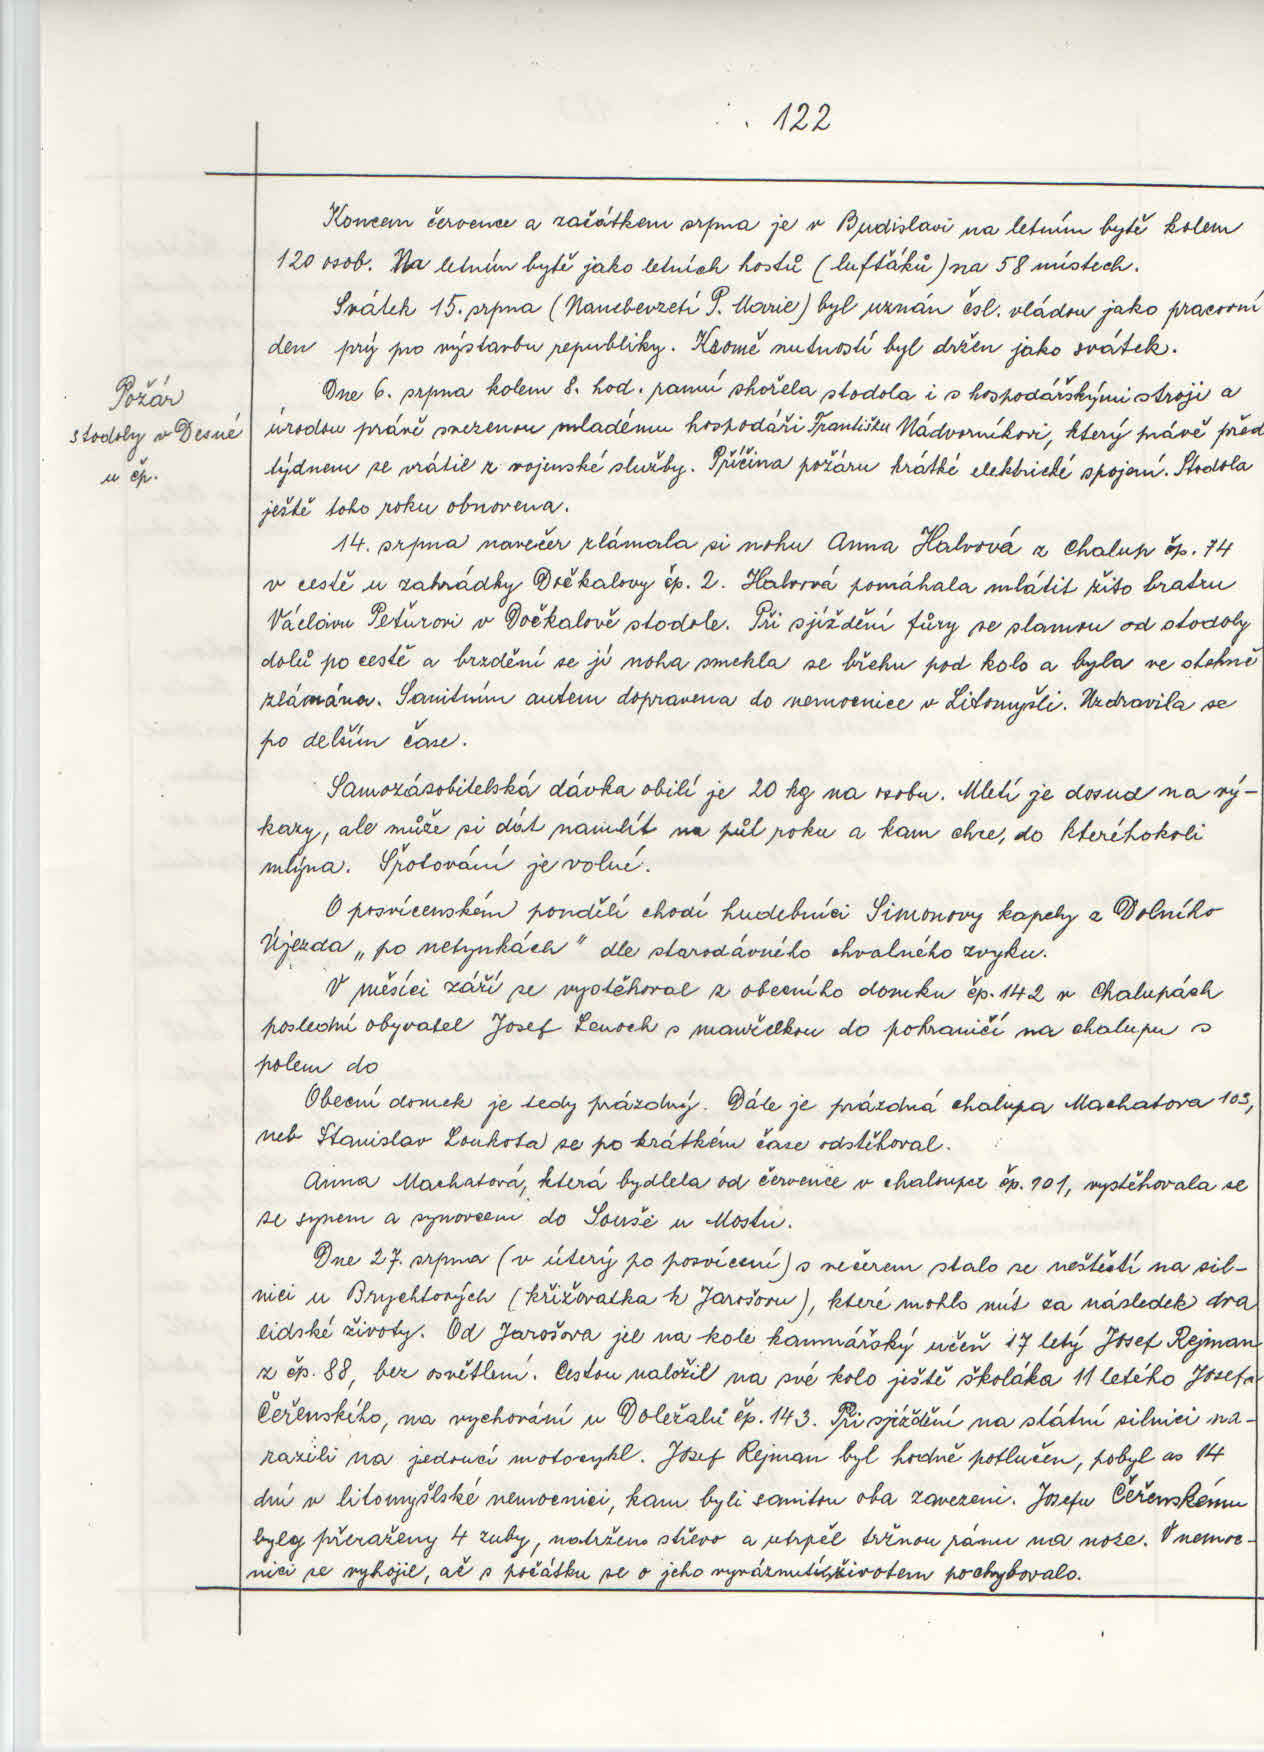 122
Koncem července a začátkem srpna je v Budislavi na letním bytě kolem
120 osob. Na letním bytě jako letních hostů (lufťáků) na 58 místech.
Svátek 15. srpna (Nanebevzetí P. Marie) byl uznán čsl. vládou jako pracovní
den prý pro výstavbu republiky. Kromě nutností byl držen jako svátek.
Požár
stodoly v Desné
u čp.
Dne 6. srpna kolem 8. hod. ranní shořela stodola i s hospodářskými stroji a
úrodou právě svezenou mladému hospodáři Františku Nádvorníkovi, který právě před
týdnem se vrátil z vojenské služby. Příčina požáru krátké elektrické spojení. Stodola
ještě toho roku obnovena.
14. srpna navečer zlámala si nohu Anna Halvová z Chalup čp. 74
v cestě u zahrádky Dočkalovy čp. 2. Halvová pomáhala mlátit žito bratru
Václavu Peťurovi v Dočkalově stodole. Při sjíždění fůry se slamou od stodoly
dolů po cestě a brzdění se jí noha smekla se břehu pod kolo a byla ve stehně
zlámána. Sanitním autem dopravena do nemocnice v Litomyšli. Uzdravila se
po delším čase.
Samozásobitelská dávka obilí je 20 kg na osobu. Mletí je dosud na vý-
kazy, ale může si dát namlít na půl roku a kam chce, do kteréhokoli
mlýna. Šrotování je volné.
O posvícenském pondělí chodí hudebníci Simonovy kapely z Dolního
Újezda „po netynkách" dle starodávného chvalného zvyku.
V měsíci září se vystěhoval z obecního domku čp. 142 v Chalupách
poslední obyvatel Josef Lenoch s manželkou do pohraničí na chalupu s
polem do
Obecní domek je tedy prázdný. Dále je prázdná chalupa Machatova 103,
neb Stanislav Loukota se po krátkém čase odstěhoval.
Anna Machatová, která bydlela od července v chaloupce čp. 101, vystěhovala se
se synem a synovcem do Souše u Mostu.
Dne 27. srpna (v úterý po posvícení) s večerem stalo se neštěstí na sil-
nici u Brychtových (křižovatka k Jarošovu), které mohlo mít za následek dva
lidské životy. Od Jarošova jel na kole kamnářský učeň 17 letý Josef Rejman
z čp. 88, bez osvětlení. Cestou naložil na své kolo ještě školáka 11 letého Josefa
Čeřenského, na vychování u Doležalů čp. 143. Při sjíždění na státní silnici na-
razili na jedoucí motocykl. Josef Rejman byl hodně potlučen, pobyl as 14
dní v litomyšlské nemocnici, kam byli sanitou oba zavezeni. Josefu Čeřenskému
byly přeraženy 4 zuby, natrženo střevo a utrpěl tržnou ránu na noze. V nemoc-
nici se vyhojil, ač s počátku se o jeho vyváznutí životem pochybovalo.